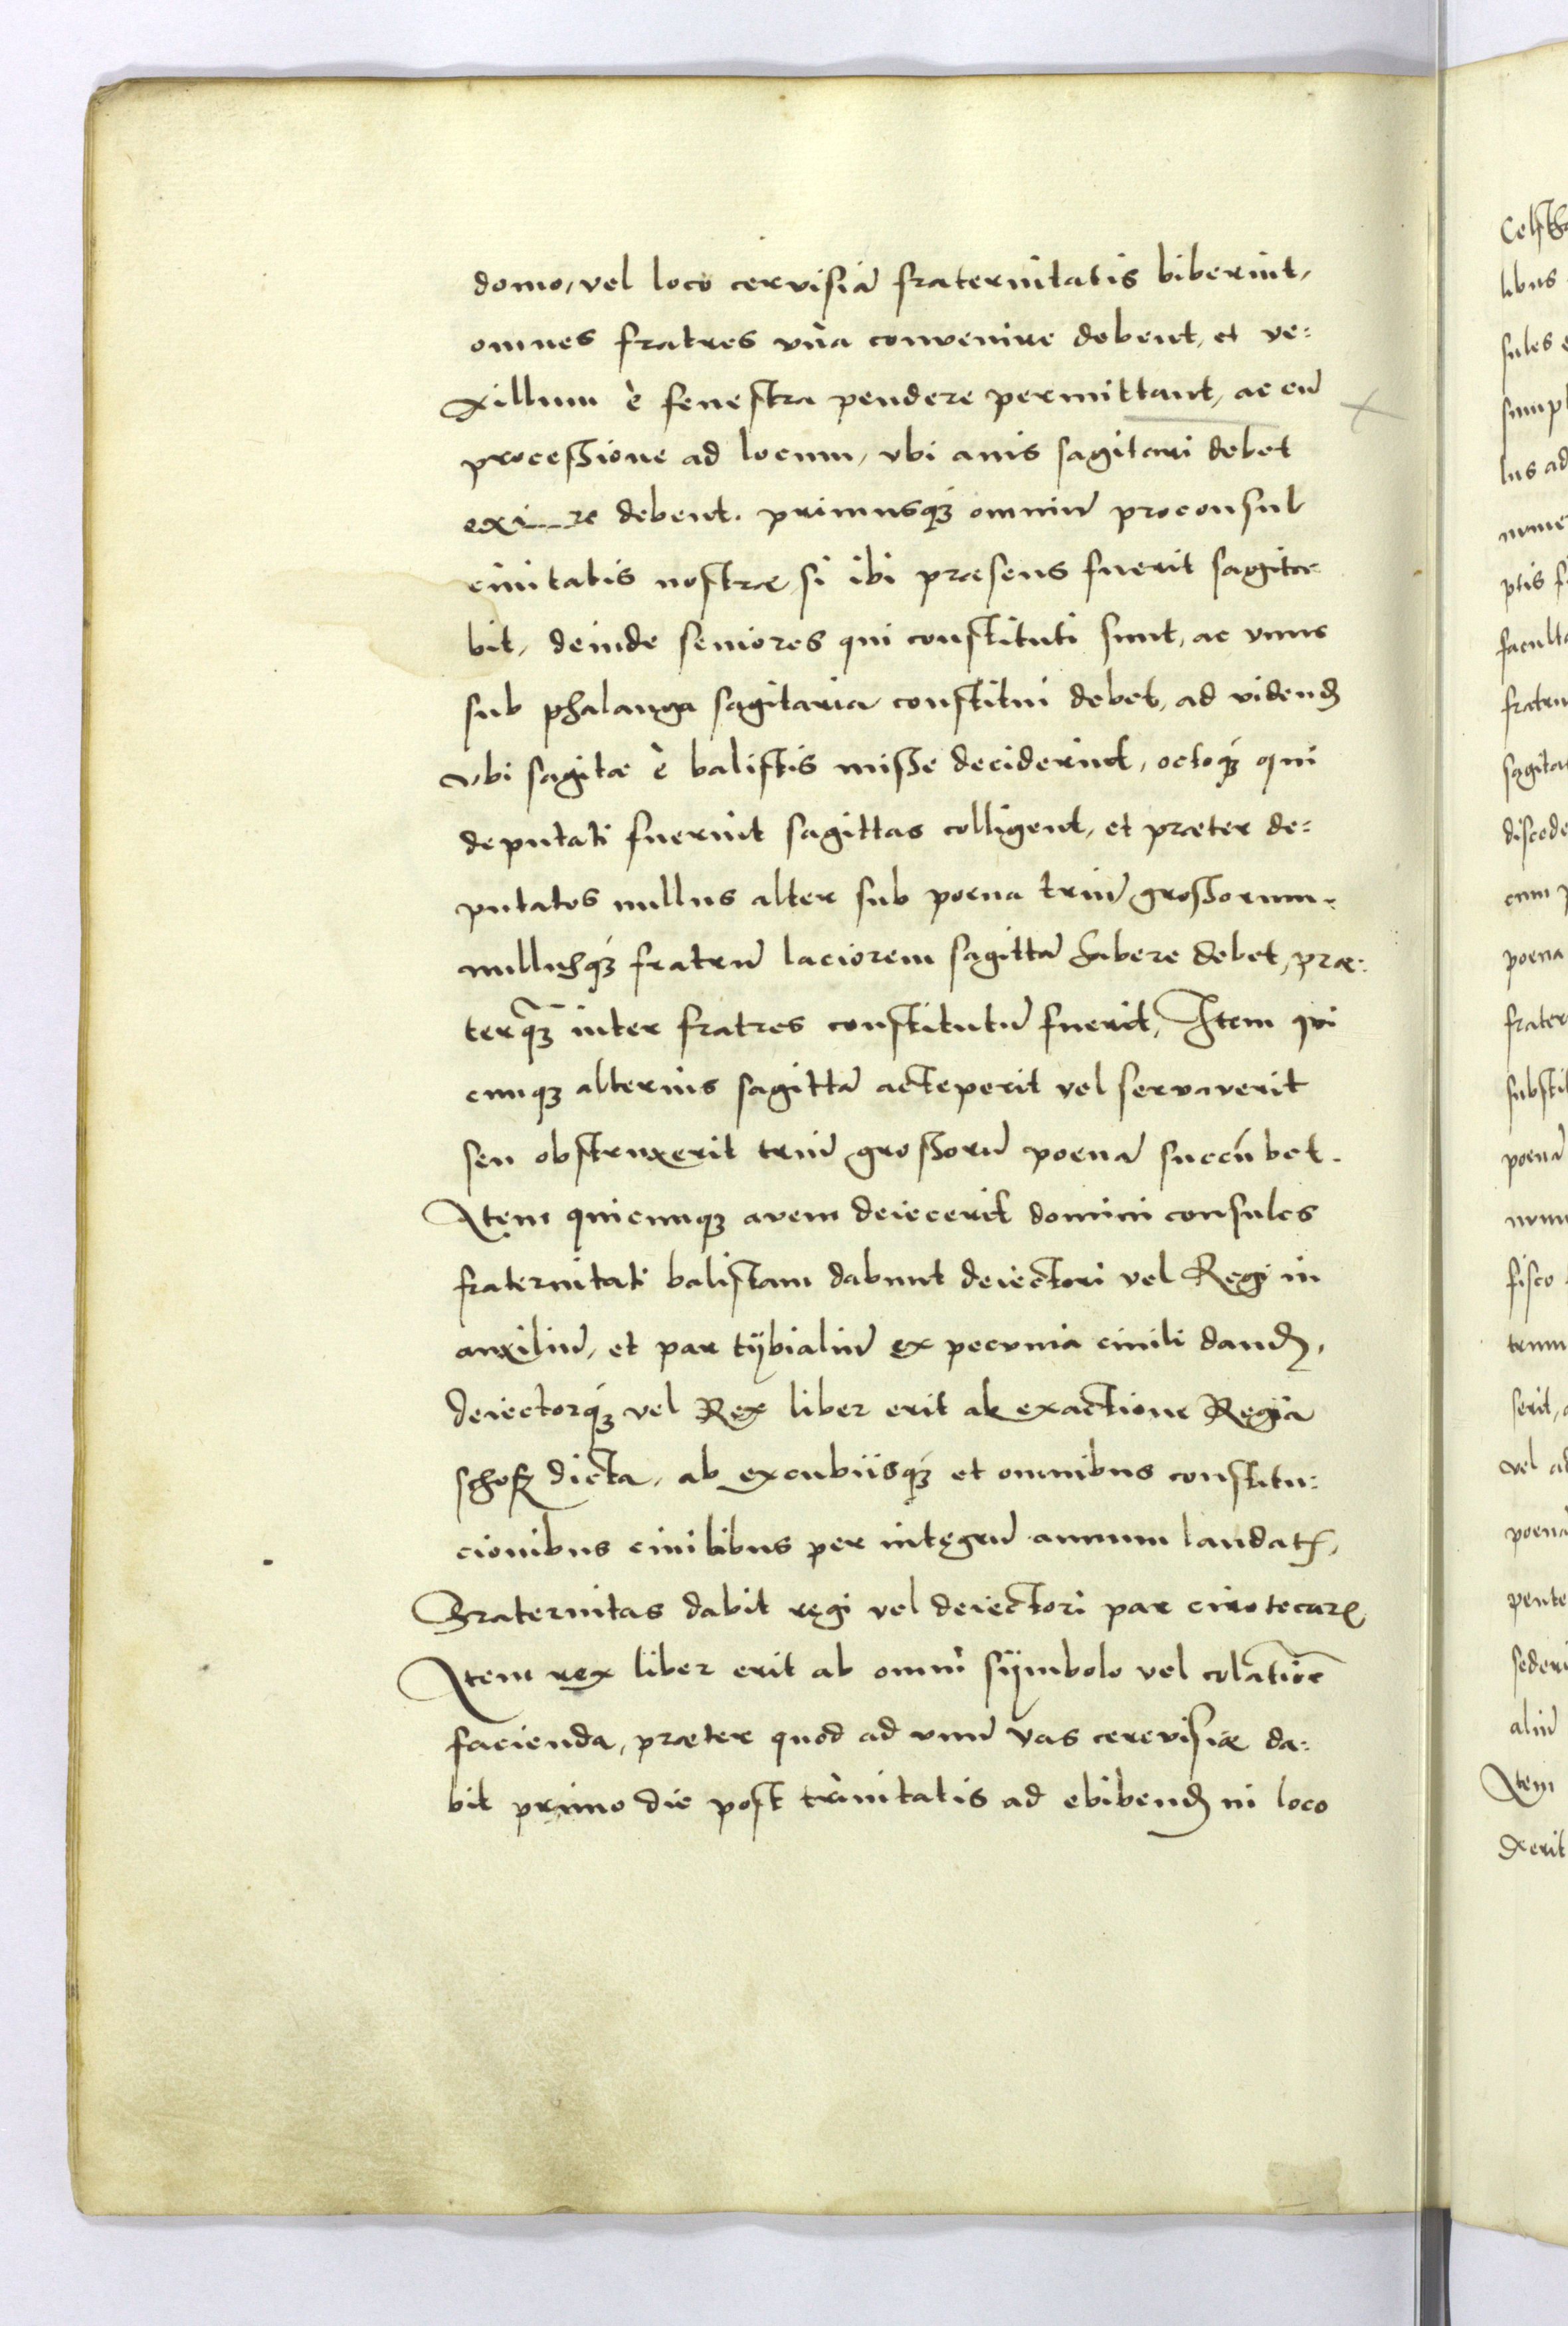 domo, vel loco cervisiā fraternitatis biberint,
omnes fratres vnà convenire debent, et ve=
xillum è fenestra pendere permittant, ac cū
processione ad locum, vbi auis sagitari debet
exi__re debent. primusq́ꝫ omniū proconsul
ciuitatis nostræ si ibi præsens fuerit sagita
bit, deinde seniores qui constituti sunt, ac vnus
sub phalanga sagitaria constitui debet, ad videnđ
vbi sagitæ è balistis misse deciderint, octoq́ꝫ qui
deputati fuerint sagittas colligent, et præter de=
putatos nullus alter sub poena triū grossorum.
nullusq́ꝫ fratrū laciorem sagittā habere debet, præ=
terq̄ꝫ inter fratres constitutū fuerit, Item qvi
cunqꝫ alterius sagittā acceperit vel servaverit
seu obstruxerit triū grossorū poenā succūbet.
Item quicunqꝫ avem deiecerit domini consules
fraternitati balistam dabunt deiectori vel Regi in
auxiliū, et par tÿbialiū ex pecvnia ciuili danđ,
deiectorq́ꝫ vel Rex liber erit ab exactione Regia
schoß dicta, ab excubiisq́ꝫ et omnibus constitu=
cionibus ciuilibus per integrū annum laudatꝭ,
Fraternitas dabit regi vel deiectori par cirotecarꝝ
Item rex liber erit ab omni sÿmbolo vel colatiōe
facienda, præter quod ad vnū vas cerevisiæ da=
bit primo die post trinitatis ad ebibenđ in loco
libus
poena
poenā
fisco
aliū
Item
xerit